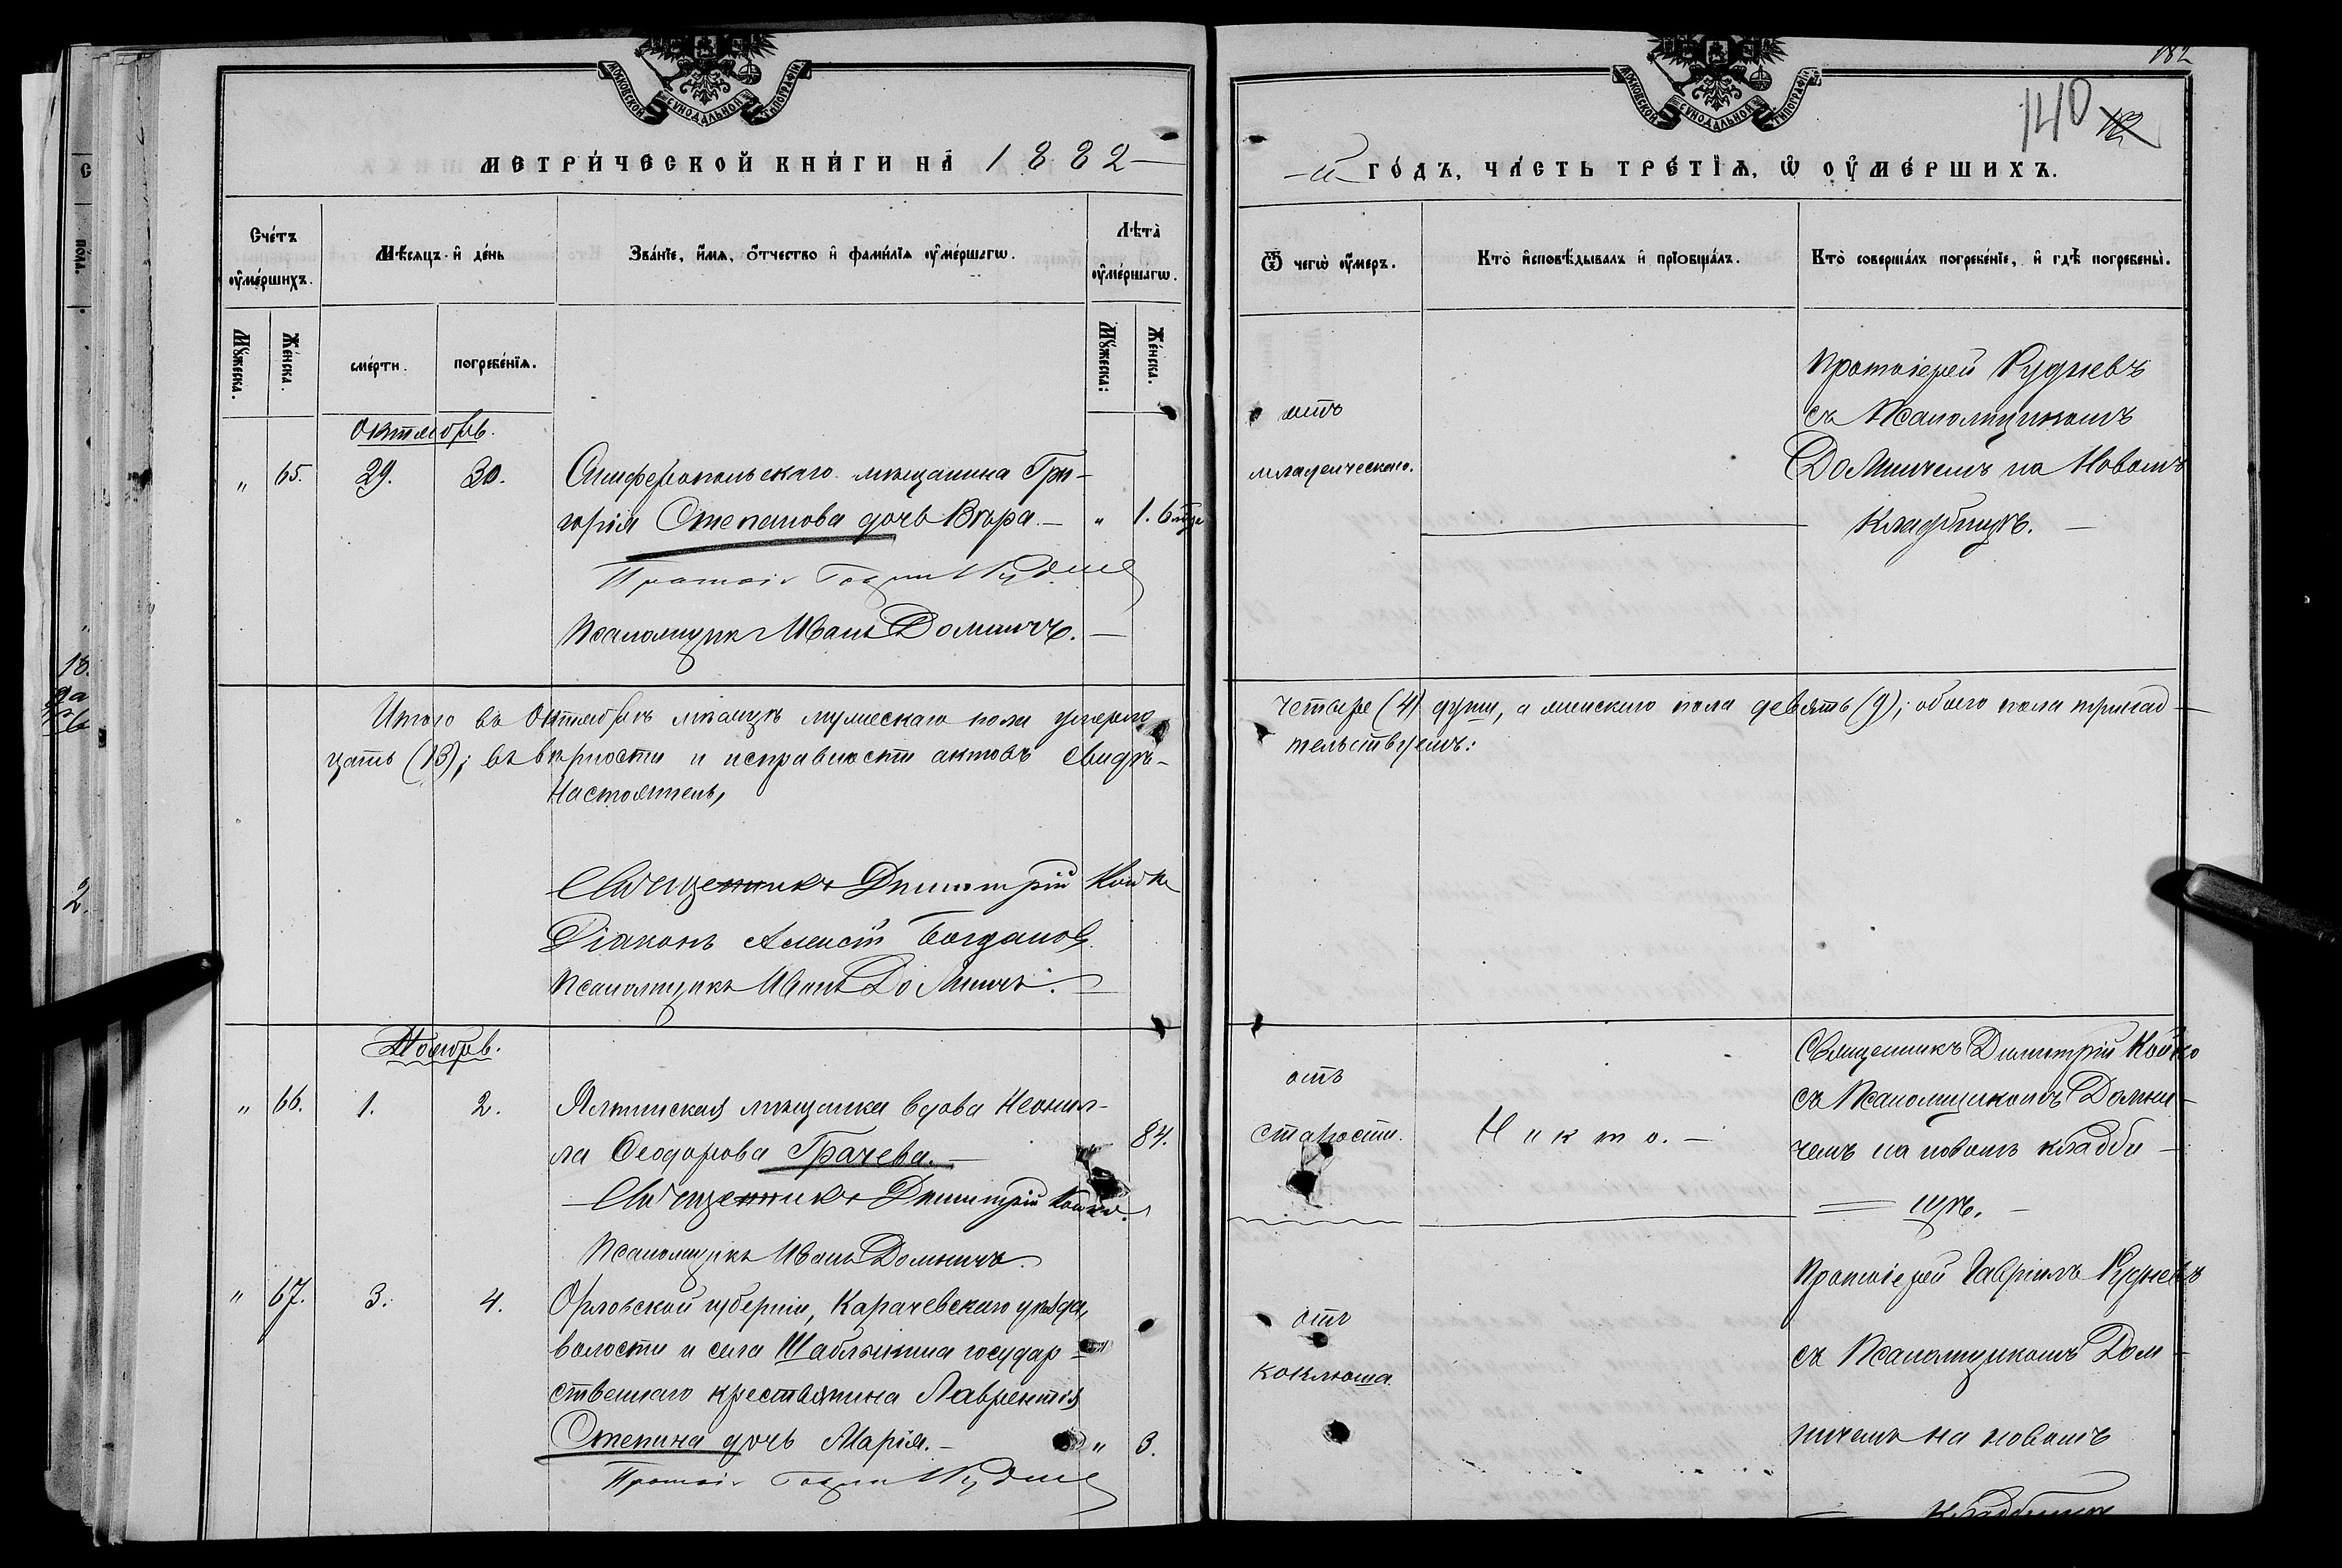 182
140
МОСКОВСКОЙ СѴНОДАЛЬНОЙ ТИПОГРАФІИ
МОСКОВСКОЙ СѴНОДАЛЬНОЙ ТИПОГРАФІИ
МЕТРИ́ЧЕСКОЙ КНИ́ГИ НА̀ 1882-
-й ГО́ДЪ, ЧА́СТЬ ТРЕ́ТІѦ, Ѡ҆ ОУ҆МЕ́РШИХЪ.
Сче́тъ оу҆ме́ршихъ.
Мѣ́сяцъ и҆ де́нь
Зва́нїе, и҆́мѧ, ѻ҆́тчество и҆ фами́лїѧ оу҆ме́ршагѡ.
Лѣта̀ оу҆ме́ршагѡ.
Ѿ чегѡ̀ оу҆́меръ.
Кто̀ и҆сповѣ́дывалъ и҆ прїѻбща́лъ.
Кто̀ соверша́лъ погребе́нїе, и҆ гдѣ̀ погребены̀.
Мꙋ́жеска.
Же́нска.
сме́рти.
погребе́нїѧ.
Мꙋ́жеска:
Же́нска.
Октябрь.
" 65. 29. 30. Симферопольскаго мѣщанина Гри-
горія Степанова дочь Вѣра.- " 1. 6 мц
Протоі Гавр Рудне
Псаломщикъ Иванъ Домничъ.-
отъ
младенческаго.
Протоіерей Рудневъ
съ Псаломщикомъ
Домничемъ на Новомъ
Кладбищѣ.-
Итого въ Октябрѣ мѣсяцѣ мужескаго пола умерло
четыре (4) души, а женскаго пола девять (9); обоего пола тринад-
цать (13); въ вѣрности и исправности актовъ свидѣ-
тельствуемъ:
Настоятель,
Священникъ Димитрій Койко
Діаконъ Алексій Богдановъ
Псаломщикъ Иванъ Домничъ.-
Ноябрь.
" 66. 1. 2. Ялтинская мѣщанка вдова Неонил-
ла Ѳеодорова Грачева.- 84.
Священникъ Димитрій Койко.
Псаломщикъ Иванъ Домничъ.
отъ
старости.
Никто.-
Священникъ Димитрій Койко
съ Псаломщикомъ Домни-
чемъ на новомъ кладби-
щѣ.-
" 67. 3. 4. Орловской губерніи, Карачевскаго уѣзда,
волости и села Шаблыкина государ-
ственнаго крестьянина Лаврентія
Степина дочь Марія.- " 3.
Протоі Гавр Рудне
отъ
коклюша.
Протоіерей Гавріилъ Рудневъ
съ Псаломщикомъ Дом-
ничемъ на новомъ
кладбищѣ